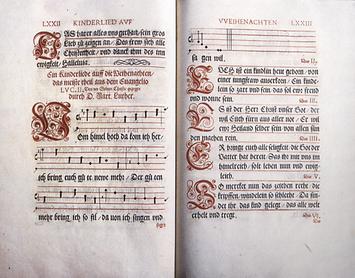 LXXII KINDERLIED AVF
DAs hat er alles uns gethan, sein gros
Lieb zu zeigen an. Des frew sich alle
Christenheit, und danck ihm des inn
ewigkeit, Halleluia.
Ein Kinderlied auff die Weihenachten,
das meiste theil aus dem Euangelio
LVC. II,
durch D. Mart. Luther.
VOm himel hoch da kom ich her,
ich bring euch gute newe mehr, Der guten
mehr bring ich so fil, da von ich singen und
VVEIHENACHTEN LXXIII
sa gen wil.
EVCH ist ein kindlin heut geborn, von
einer jungfraw auserkorn, Ein kinde
lein so zart und fein, das sol ewr frewd
und wonne sein.
ES ist der Herr Christ unser Got, der
wil euch füren aus aller not, Er wil
ewr Heiland selber sein von allen sün
den machen rein.
ER bringt euch alle seligkeit, die Got der
Vatter hat bereit, Das ihr mit uns im
himelreich, solt leben nun und ewig
leich.
SO mercket nun das zeichen recht, die
krippen, windelein so schlecht, Da fin
det ihr das kind gelegt, das alle welt
erhelt und tregt.